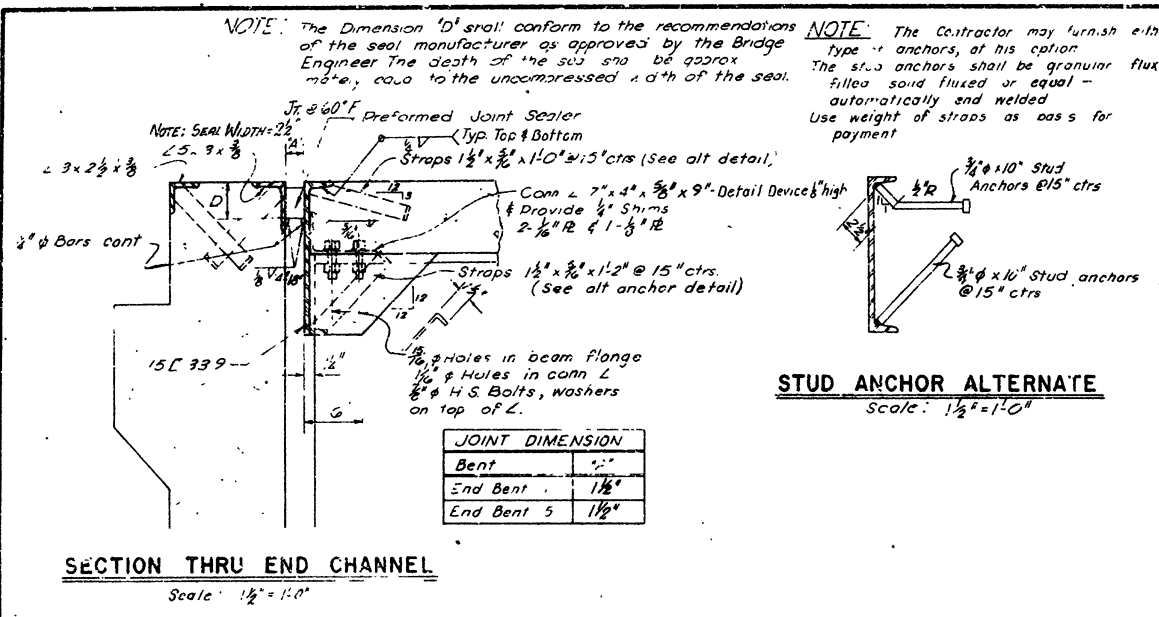 NOTE: The Dimension "D" shall conform to the recommendations
of the seal manufacturer as approved by the Bridge
Engineer The depth of the be approx
to the uncompressed width of the seal.
NOTE: The Contractor may furnish
type anchors, at his option
The stud anchors shall be granular flux
filled solid fluxed or equal -
automatically end welded
Use weight of straps as for
payment
Jt. @ 60° F
Preformed Joint Sealer
NOTE: SEAL WIDTH = 2 1/2"
"A"
Typ. Top & Bottom
∠ 3 x 2 1/2 x 3/8
∠ 5 x 3 x 3/8
Straps 1 1/2" x 5/16" x 1'-0" @ 15" ctrs (See alt detail)
12
3
D
Conn ∠ 7" x 4" x 5/8" x 9" - Detail Device high
& Provide 1/4" Shims
2 - 1/16" PL & 1 - 1/8" PL
5/16
φ Bars cont
Straps 1 1/2" x 5/16" x 1'-2" @ 15" ctrs.
(See alt anchor detail)
12
12
15 [ 33.9
1/2"
6
15/16" φ Holes in beam flange
1 1/16" φ Holes in conn ∠
φ H S. Bolts, washers
on top of ∠.
JOINT DIMENSION
Bent
End Bent 1 1/2"
End Bent 5 1 1/2"
SECTION THRU END CHANNEL
Scale: 1 1/2" = 1'-0"
3/4" φ x 10" Stud
Anchors @ 15" ctrs
1/2" R
2 1/2"
3/4" φ x 10" Stud anchors
@ 15" ctrs
STUD ANCHOR ALTERNATE
Scale: 1 1/2" = 1'-0"